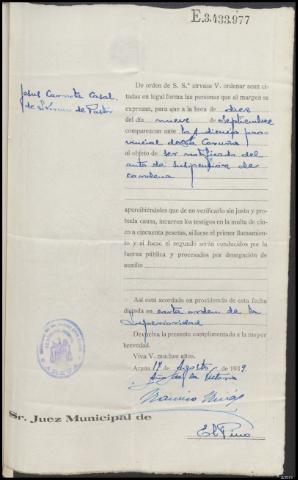 E.3.433.977
De orden de S. S.ª sírvase V. ordenar sean ci-
tadas en legal forma las personas que al margen se
expresan, para que a la hora de diez
del día nueve de Septiembre
comparezcan ante la Audiencia pro-
vincial de La Coruña
al objeto de ser notificado del
auto de suspensión de
condena
apercibiéndoles que de no verificarlo sin justa y pro-
bada causa, incurren los testigos en la multa de cin-
co a cincuenta pesetas, si fuese el primer llamamien-
to y si fuese el segundo serán conducidos por la
fuerza pública y procesados por denegación de
auxilio
Así está acordado en providencia de esta fecha
dictada en carta orden de la
Superioridad
Devuelva la presente cumplimentada a la mayor
brevedad.
Viva V. muchos años.
Arzúa 19 de Agosto de 1939
Año de la Victoria
Sr. Juez Municipal de
El Pino